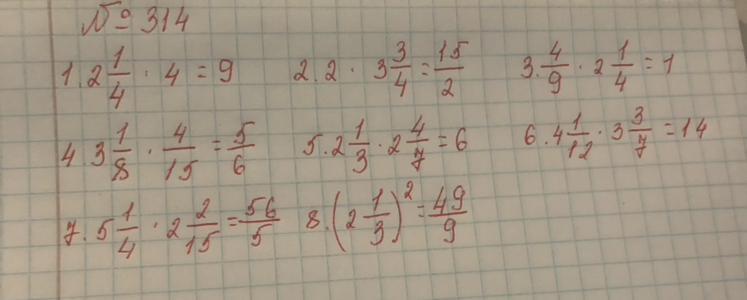 № 314
1. 2 1/4 · 4 = 9 2. 2 · 3 3/4 = 15/2 3. 4/9 · 2 1/4 = 1
4 3 1/8 · 4/15 = 5/6 5. 2 1/3 · 2 4/7 = 6 6. 4 1/12 · 3 3/7 = 14
7. 5 1/4 · 2 2/15 = 56/5 8. (2 1/3)² = 49/9